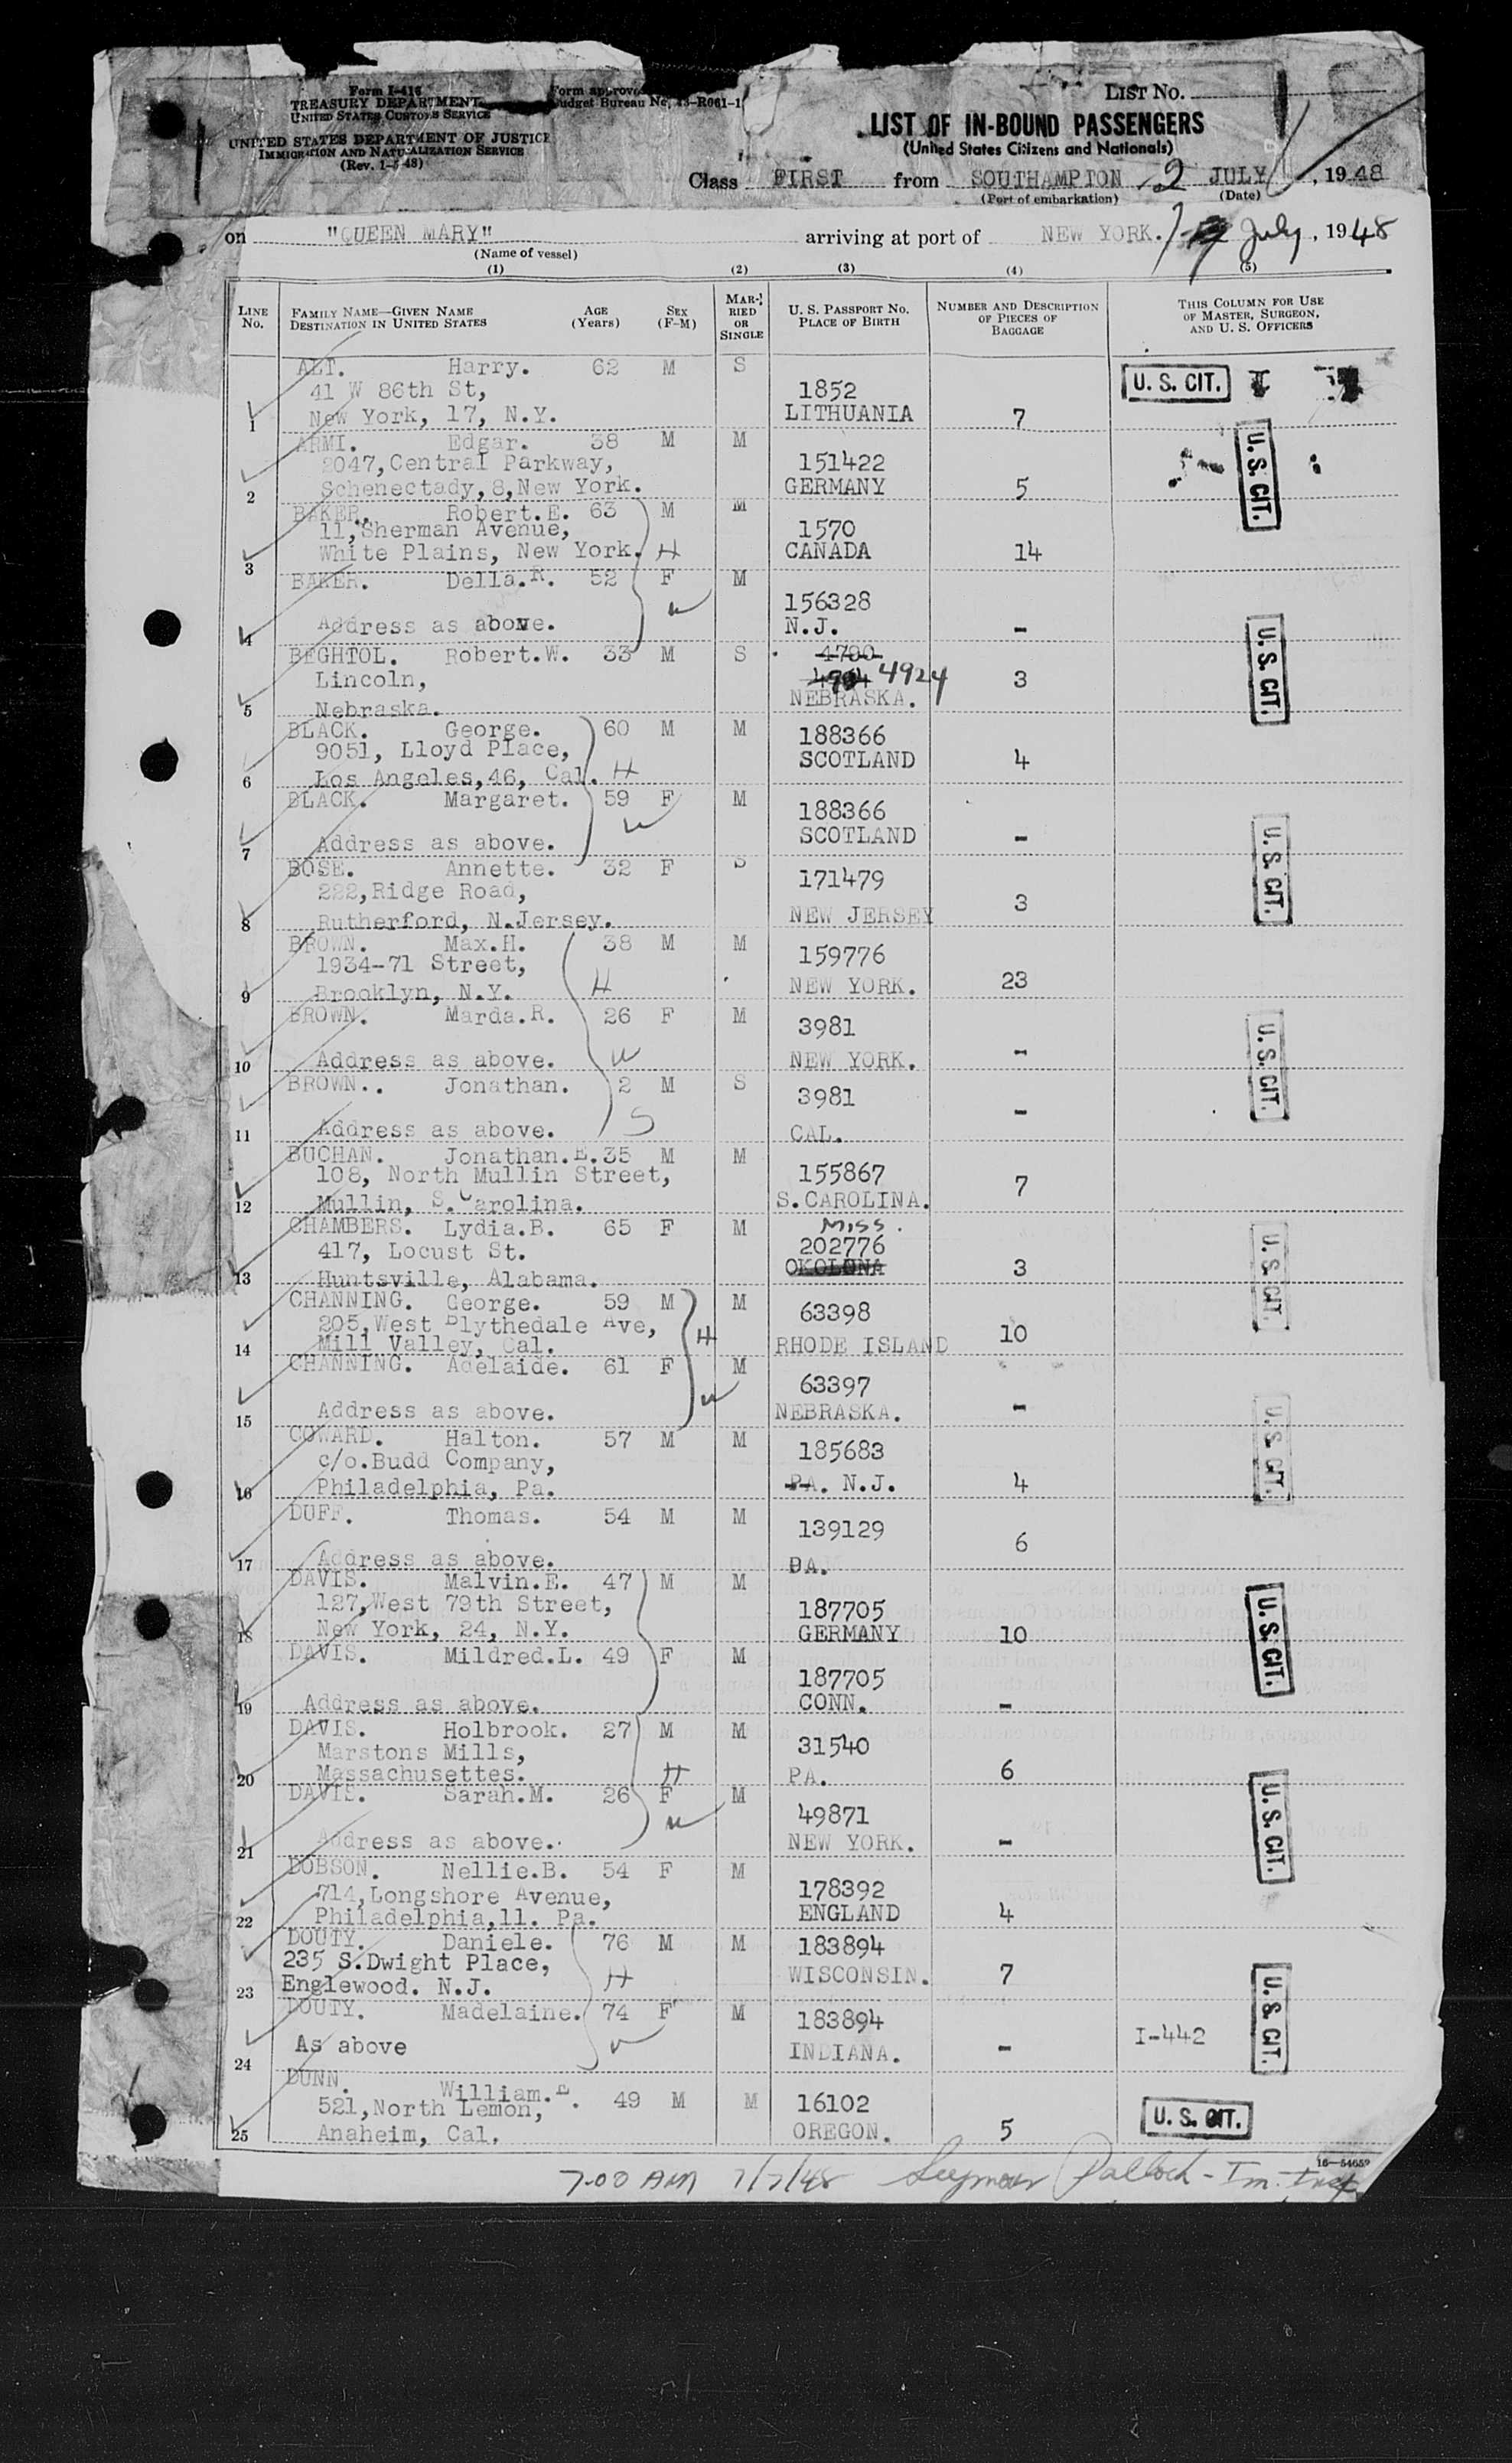 Form I-416
TREASURY DEPARTMENT
UNITED STATES CUSTOMS SERVICE
UNITED STATES DEPARTMENT OF JUSTICE
IMMIGRATION AND NATURALIZATION SERVICE
(Rev. 1-5-48)
Form approved
Budget Bureau No. 43-R061-1
LIST NO.
LIST OF IN-BOUND PASSENGERS
(United States Citizens and Nationals)
Class FIRST from SOUTHAMPTON 2 JULY, 1948
(Port of embarkation) (Date)
on "QUEEN MARY" arriving at port of NEW YORK. 7 July, 1948
(Name of vessel)
(1) (2) (3) (4) (5)
LINE No. FAMILY NAME—GIVEN NAME DESTINATION IN UNITED STATES AGE (Years) SEX (F-M) MARRIED OR SINGLE U. S. PASSPORT NO. PLACE OF BIRTH NUMBER AND DESCRIPTION OF PIECES OF BAGGAGE THIS COLUMN FOR USE OF MASTER, SURGEON, AND U. S. OFFICERS
ALT. Harry. 62 M S
41 W 86th St, 1852 U. S. CIT.
1 New York, 17, N.Y. LITHUANIA 7
ARMI. Edgar. 38 M M
2047,Central Parkway, 151422 U. S. CIT.
2 Schenectady,8,New York. GERMANY 5
BAKER. Robert.E. 63 M M
11,Sherman Avenue, 1570
3 White Plains, New York. H CANADA 14
BAKER. Della.R. 52 F M
W 156328
4 Address as above. N.J. -
BEGHTOL. Robert.W. 33 M S 4780
Lincoln, 4924 3 U. S. CIT.
5 Nebraska. NEBRASKA.
BLACK. George. 60 M M
9051, Lloyd Place, 188366
6 Los Angeles,46, Cal. H SCOTLAND 4
BLACK. Margaret. 59 F M
W 188366
7 Address as above. SCOTLAND - U. S. CIT.
BOSE. Annette. 32 F S
222,Ridge Road, 171479
8 Rutherford, N.Jersey. NEW JERSEY 3
BROWN. Max.H. 38 M M
1934-71 Street, 159776
9 Brooklyn, N.Y. H NEW YORK. 23
BROWN. Marda.R. 26 F M
W 3981 U. S. CIT.
10 Address as above. NEW YORK. -
BROWN.. Jonathan. 2 M S
S 3981
11 Address as above. CAL. -
BUCHAN. Jonathan.E.35 M M
108, North Mullin Street, 155867
12 Mullin, S.Carolina. S.CAROLINA. 7
CHAMBERS. Lydia.B. 65 F M MISS.
417, Locust St. 202776 U. S. CIT.
13 Huntsville, Alabama. OKOLONA 3
CHANNING. George. 59 M M
205,West Blythedale Ave, H 63398
14 Mill Valley, Cal. RHODE ISLAND 10
CHANNING. Adelaide. 61 F M
W 63397
15 Address as above. NEBRASKA. -
COWARD. Halton. 57 M M
c/o.Budd Company, 185683 U. S. CIT.
16 Philadelphia, Pa. PA. N.J. 4
DUFF. Thomas. 54 M M
139129
17 Address as above. PA. 6
DAVIS. Malvin.E. 47 M M
127,West 79th Street, 187705
18 New York, 24, N.Y. GERMANY 10 U. S. CIT.
DAVIS. Mildred.L. 49 F M
187705
19 Address as above. CONN. -
DAVIS. Holbrook. 27 M M
Marstons Mills, 31540
20 Massachusettes. H PA. 6
DAVIS. Sarah.M. 26 F M
W 49871 U. S. CIT.
21 Address as above. NEW YORK. -
DOBSON. Nellie.B. 54 F M
714,Longshore Avenue, 178392
22 Philadelphia,11. Pa. ENGLAND 4
DOUTY. Daniele. 76 M M 183894
235 S.Dwight Place, H
23 Englewood. N.J. WISCONSIN. 7
DOUTY. Madelaine. 74 F M
As above W 183894 I-442 U. S. CIT.
24 INDIANA. -
DUNN. William. 49 M M
521,North Lemon, 16102 U. S. CIT.
25 Anaheim, Cal. OREGON. 5
16—54659
7.00 AM 7/7/48 Seymour Pallock - Im. Insp.